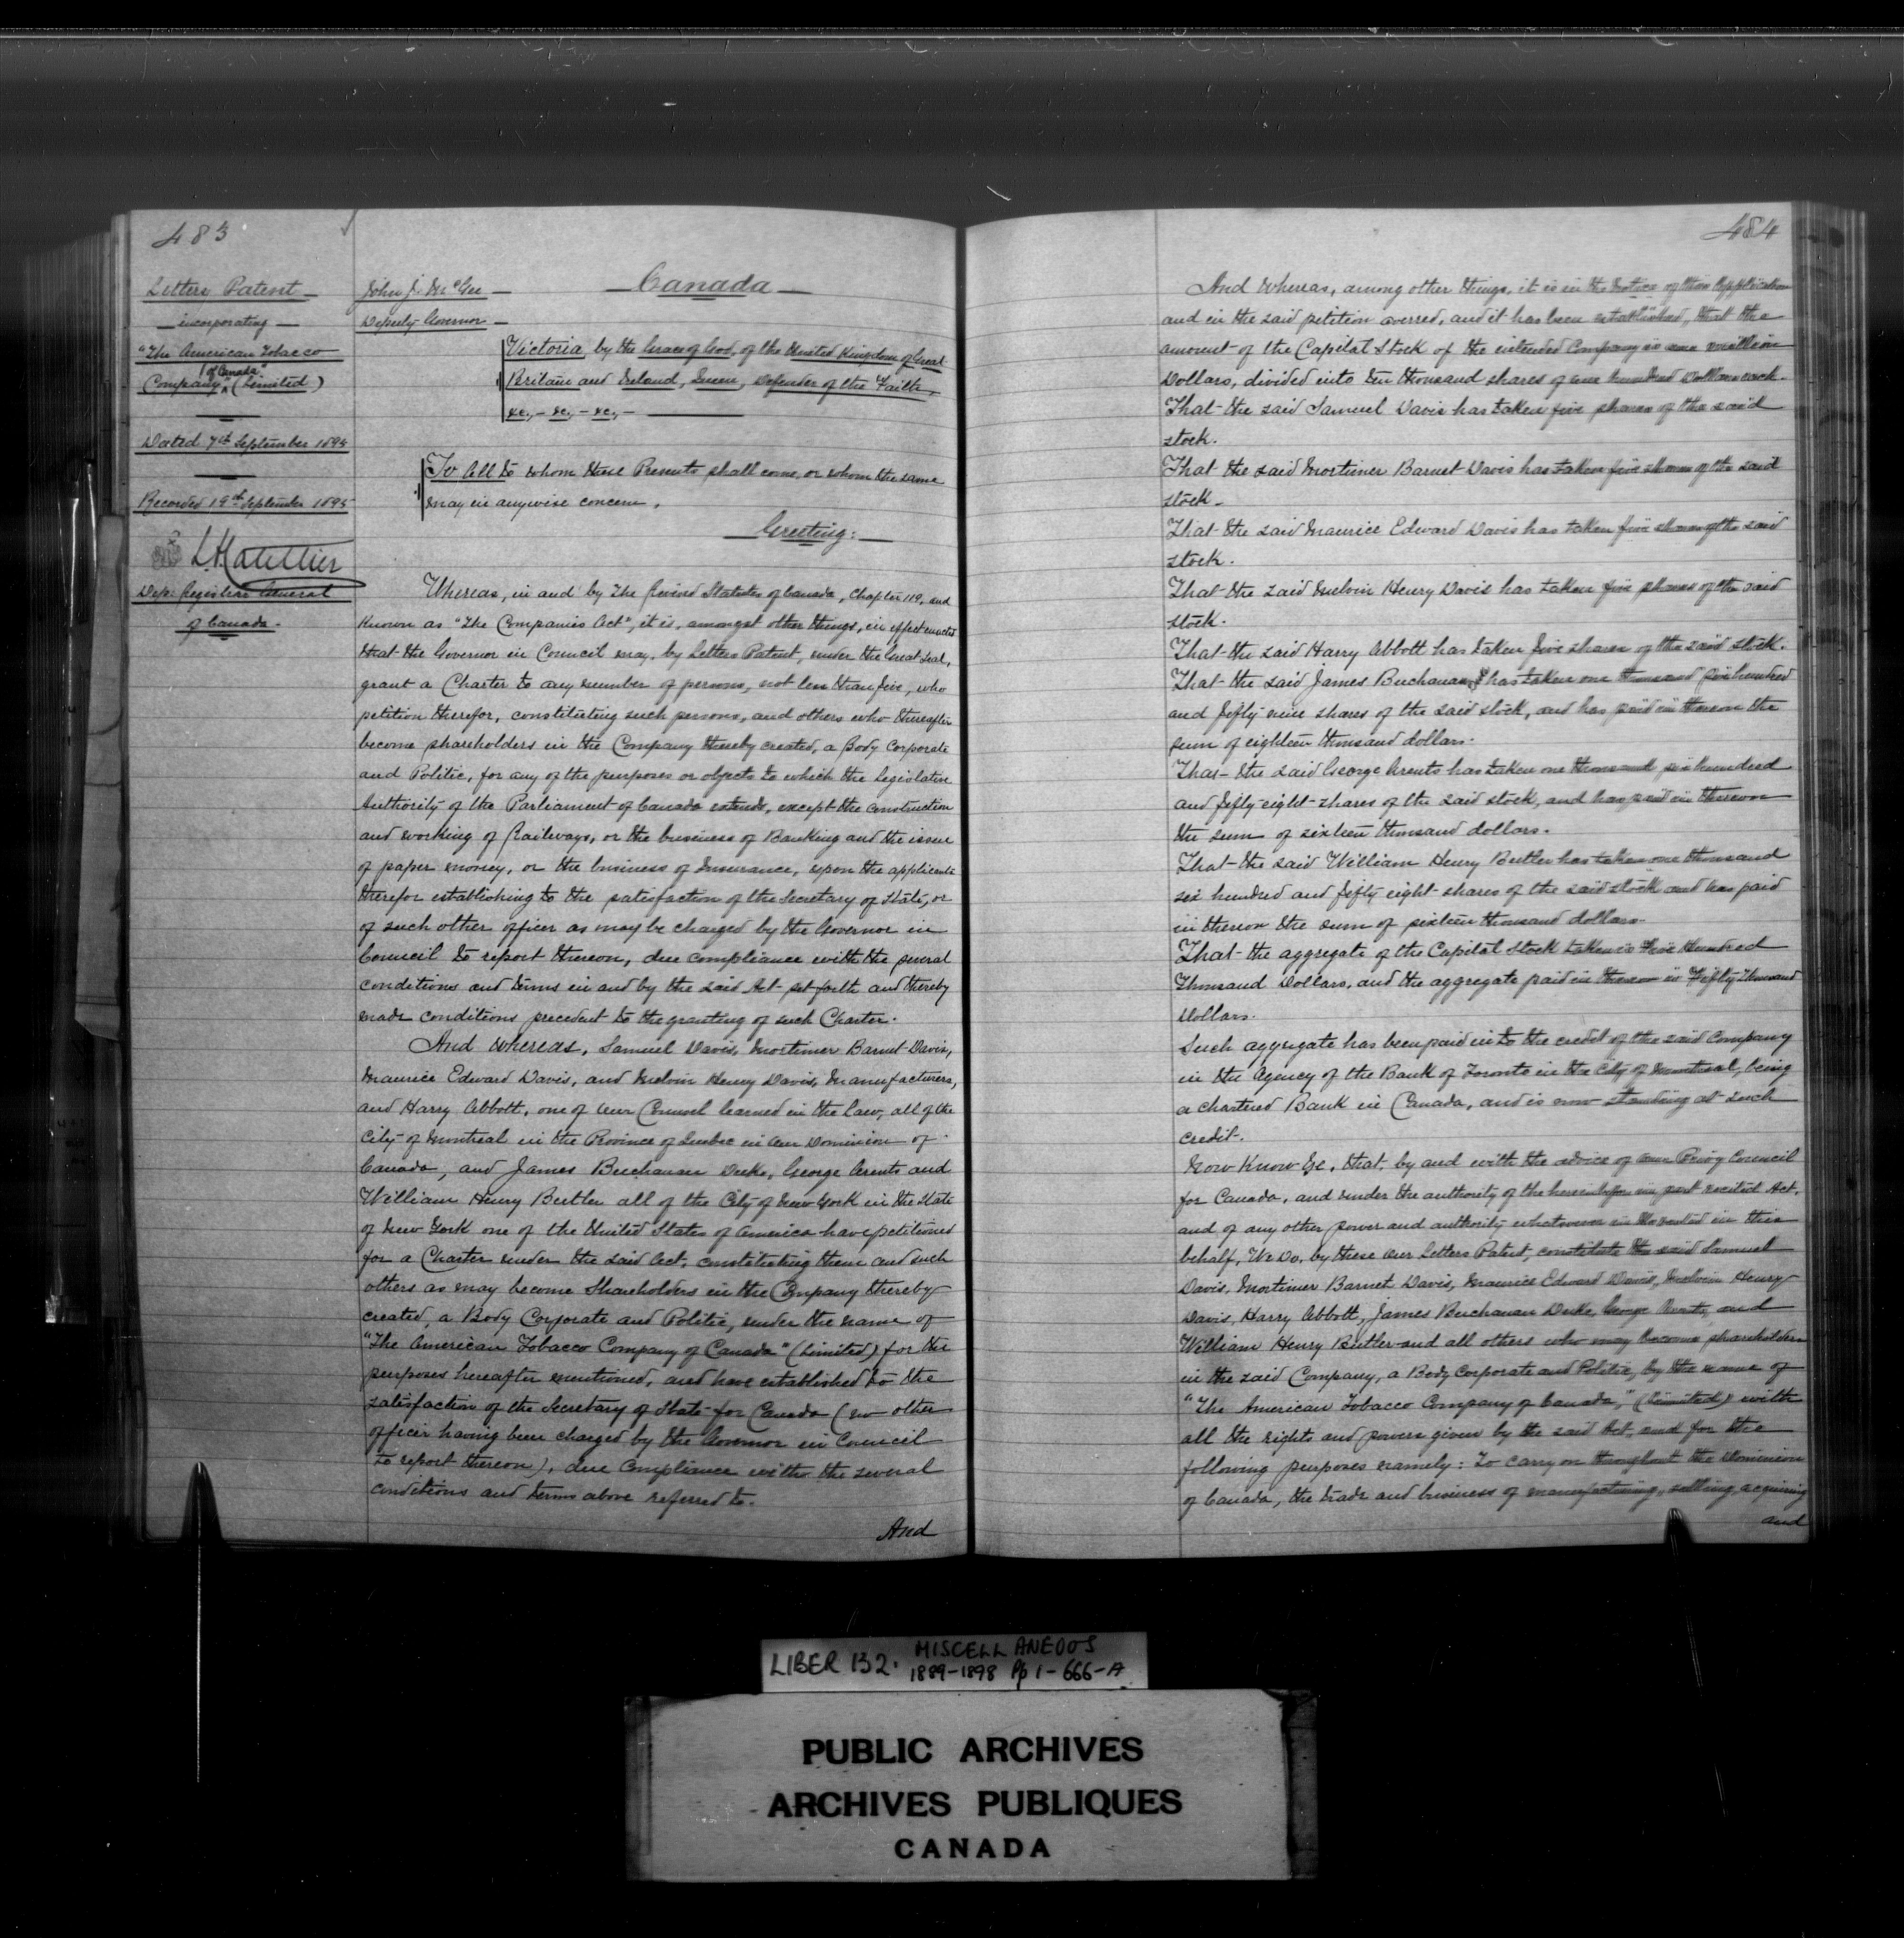 483
Letters Patent
incorporating
"The American Tobacco
of Canada"
Company" (Limited)
Dated 7th September 1895
Recorded 19th September 1895
Dep: Registrar General
of Canada.
John J. McGee
Deputy Governor
Canada
Victoria, by the Grace of God, of the United Kingdom of Great
Britain and Ireland, Queen, Defender of the Faith,
&c., - &c., - &c., -
To All to whom these Presents shall come, or whom the same
may in anywise concern,
Greeting:
Whereas, in and by The Revised Statutes of Canada, Chapter 119, and
Known as "The Companies Act", it is, amongst other things, in effect enacted
that the Governor in Council may, by Letters Patent, under the Great Seal,
grant a Charter to any number of persons, not less than five, who
petition therefor, constituting such persons, and others who thereafter
become shareholders in the Company thereby created, a Body Corporate
and Politic, for any of the purposes or objects to which the Legislative
Authority of the Parliament of Canada extends, except the construction
and working of Railways, or the business of Banking and the issue
of paper money, or the business of Insurance, upon the applicants
therefor establishing to the satisfaction of the Secretary of State, or
of such other officer as may be charged by the Governor in
Council to report thereon, due compliance with the several
conditions and terms in and by the said Act set forth and thereby
made conditions precedent to the granting of such Charter.
And whereas, Samuel Davis, Mortimer Barnet Davis,
Maurice Edward Davis, and Melvin Henry Davis, Manufacturers,
and Harry Abbott, one of Our Counsel learned in the law, all of the
City of Montreal in the Province of Quebec in Our Dominion of
Canada, and James Buchanan Duke, George Arents and
William Henry Butler all of the City of New York in the State
of New York one of the United States of America have petitioned
for a Charter under the said Act, constituting them and such
others as may become Shareholders in the Company thereby
created, a Body Corporate and Politic, under the name of
"The American Tobacco Company of Canada" (Limited) for the
purposes hereafter mentioned, and have established to the
satisfaction of the Secretary of State for Canada (no other
officer having been charged by the Governor in Council
to report thereon), due compliance with the several
conditions and terms above referred to.
And
484
And whereas, among other things, it is in the Notice of this Application
and in the said petition averred, and it has been established, that the
amount of the Capital Stock of the intended Company is one million
Dollars, divided into ten thousand shares of one hundred Dollars each.
That the said Samuel Davis has taken five shares of the said
stock.
That the said Mortimer Barnet Davis has taken five shares of the said
stock.
That the said Maurice Edward Davis has taken five shares of the said
stock.
That the said Melvin Henry Davis has taken five shares of the said
stock.
That the said Harry Abbott has taken five shares of the said stock.
That the said James Buchanan has taken one thousand six hundred
and fifty nine shares of the said stock, and has paid in thereon the
sum of eighteen thousand dollars.
That the said George Arents has taken one thousand six hundred
and fifty eight shares of the said stock, and has paid in thereon
the sum of sixteen thousand dollars.
That the said William Henry Butler has taken one thousand
six hundred and fifty eight shares of the said stock and has paid
in thereon the sum of sixteen thousand dollars.
That the aggregate of the Capital Stock taken is Five Hundred
Thousand Dollars, and the aggregate paid in thereon is Fifty Thousand
Dollars.
Such aggregate has been paid in to the credit of the said Company
in the Agency of the Bank of Toronto in the City of Montreal, being
a chartered Bank in Canada, and is now standing at such
credit.
Now Know Ye, that, by and with the advice of Our Privy Council
for Canada, and under the authority of the hereinbefore in part recited Act,
and of any other power and authority whatsoever in Us vested in this
behalf, We Do, by these Our Letters Patent, constitute the said Samuel
Davis, Mortimer Barnet Davis, Maurice Edward Davis, Melvin Henry
Davis, Harry Abbott, James Buchanan Duke, George Arents, and
William Henry Butler and all others who may become shareholders
in the said Company, a Body Corporate and Politic, by the name of
"The American Tobacco Company of Canada," (Limited) with
all the rights and powers given by the said Act, and for the
following purposes namely: To carry on throughout the Dominion
of Canada, the trade and business of manufacturing, selling, acquiring
and
LIBER 132. MISCELLANEOUS
1889-1898 Pp 1-666-A
PUBLIC ARCHIVES
ARCHIVES PUBLIQUES
CANADA